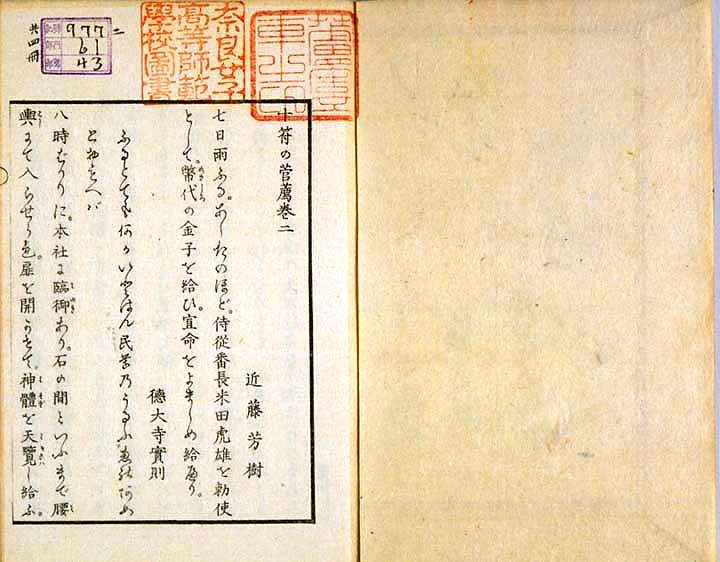 二
977
61
43
共四冊
奈良女子
高等師範
學校圖書
十符の菅薦巻二
近藤芳樹
七日雨ふる。あしたのほど。侍從番長米田虎雄を勅使
として。幣代の金子を給ひ。宣命をよましめ給へり。
德大寺實則
ふるとても何かいとはん民草のうるふ
とおもへば
八時ばかりに。本社に臨御あり。石の間といふまで腰
輿にて入らせらる。扉を開かせて。神體を天覽し給ふ。